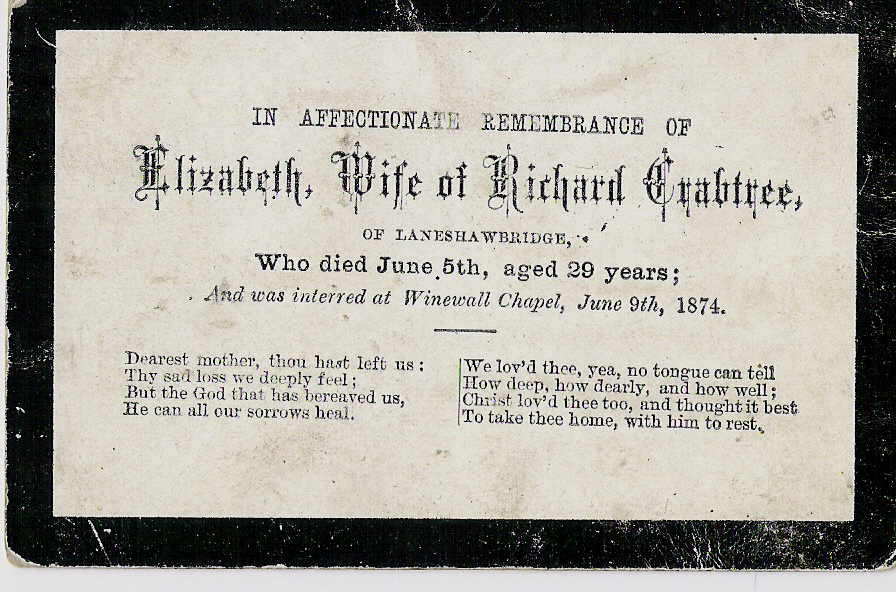 IN AFFECTIONATE REMEMBRANCE OF
Elizabeth, Wife of Richard Crabtree,
OF LANESHAWBRIDGE,
Who died June 5th, aged 29 years;
And was interred at Winewall Chapel, June 9th, 1874.
Dearest mother, thou hast left us:
Thy sad loss we deeply feel;
But the God that has bereaved us,
He can all our sorrows heal.
We lov'd thee, yea, no tongue can tell
How deep, how dearly, and how well;
Christ lov'd thee too, and thought it best
To take thee home, with him to rest.